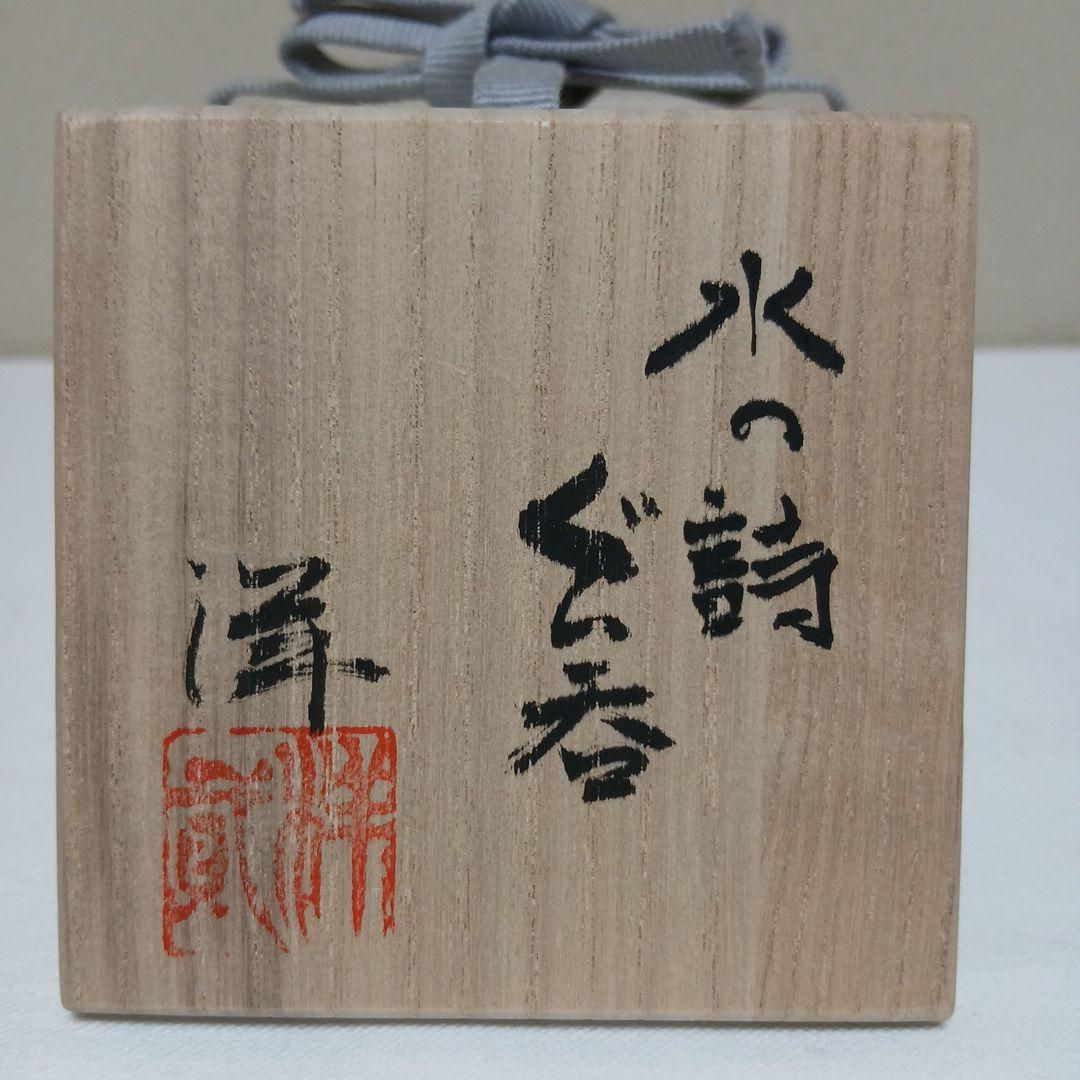 水の詩
ぐい呑
洋